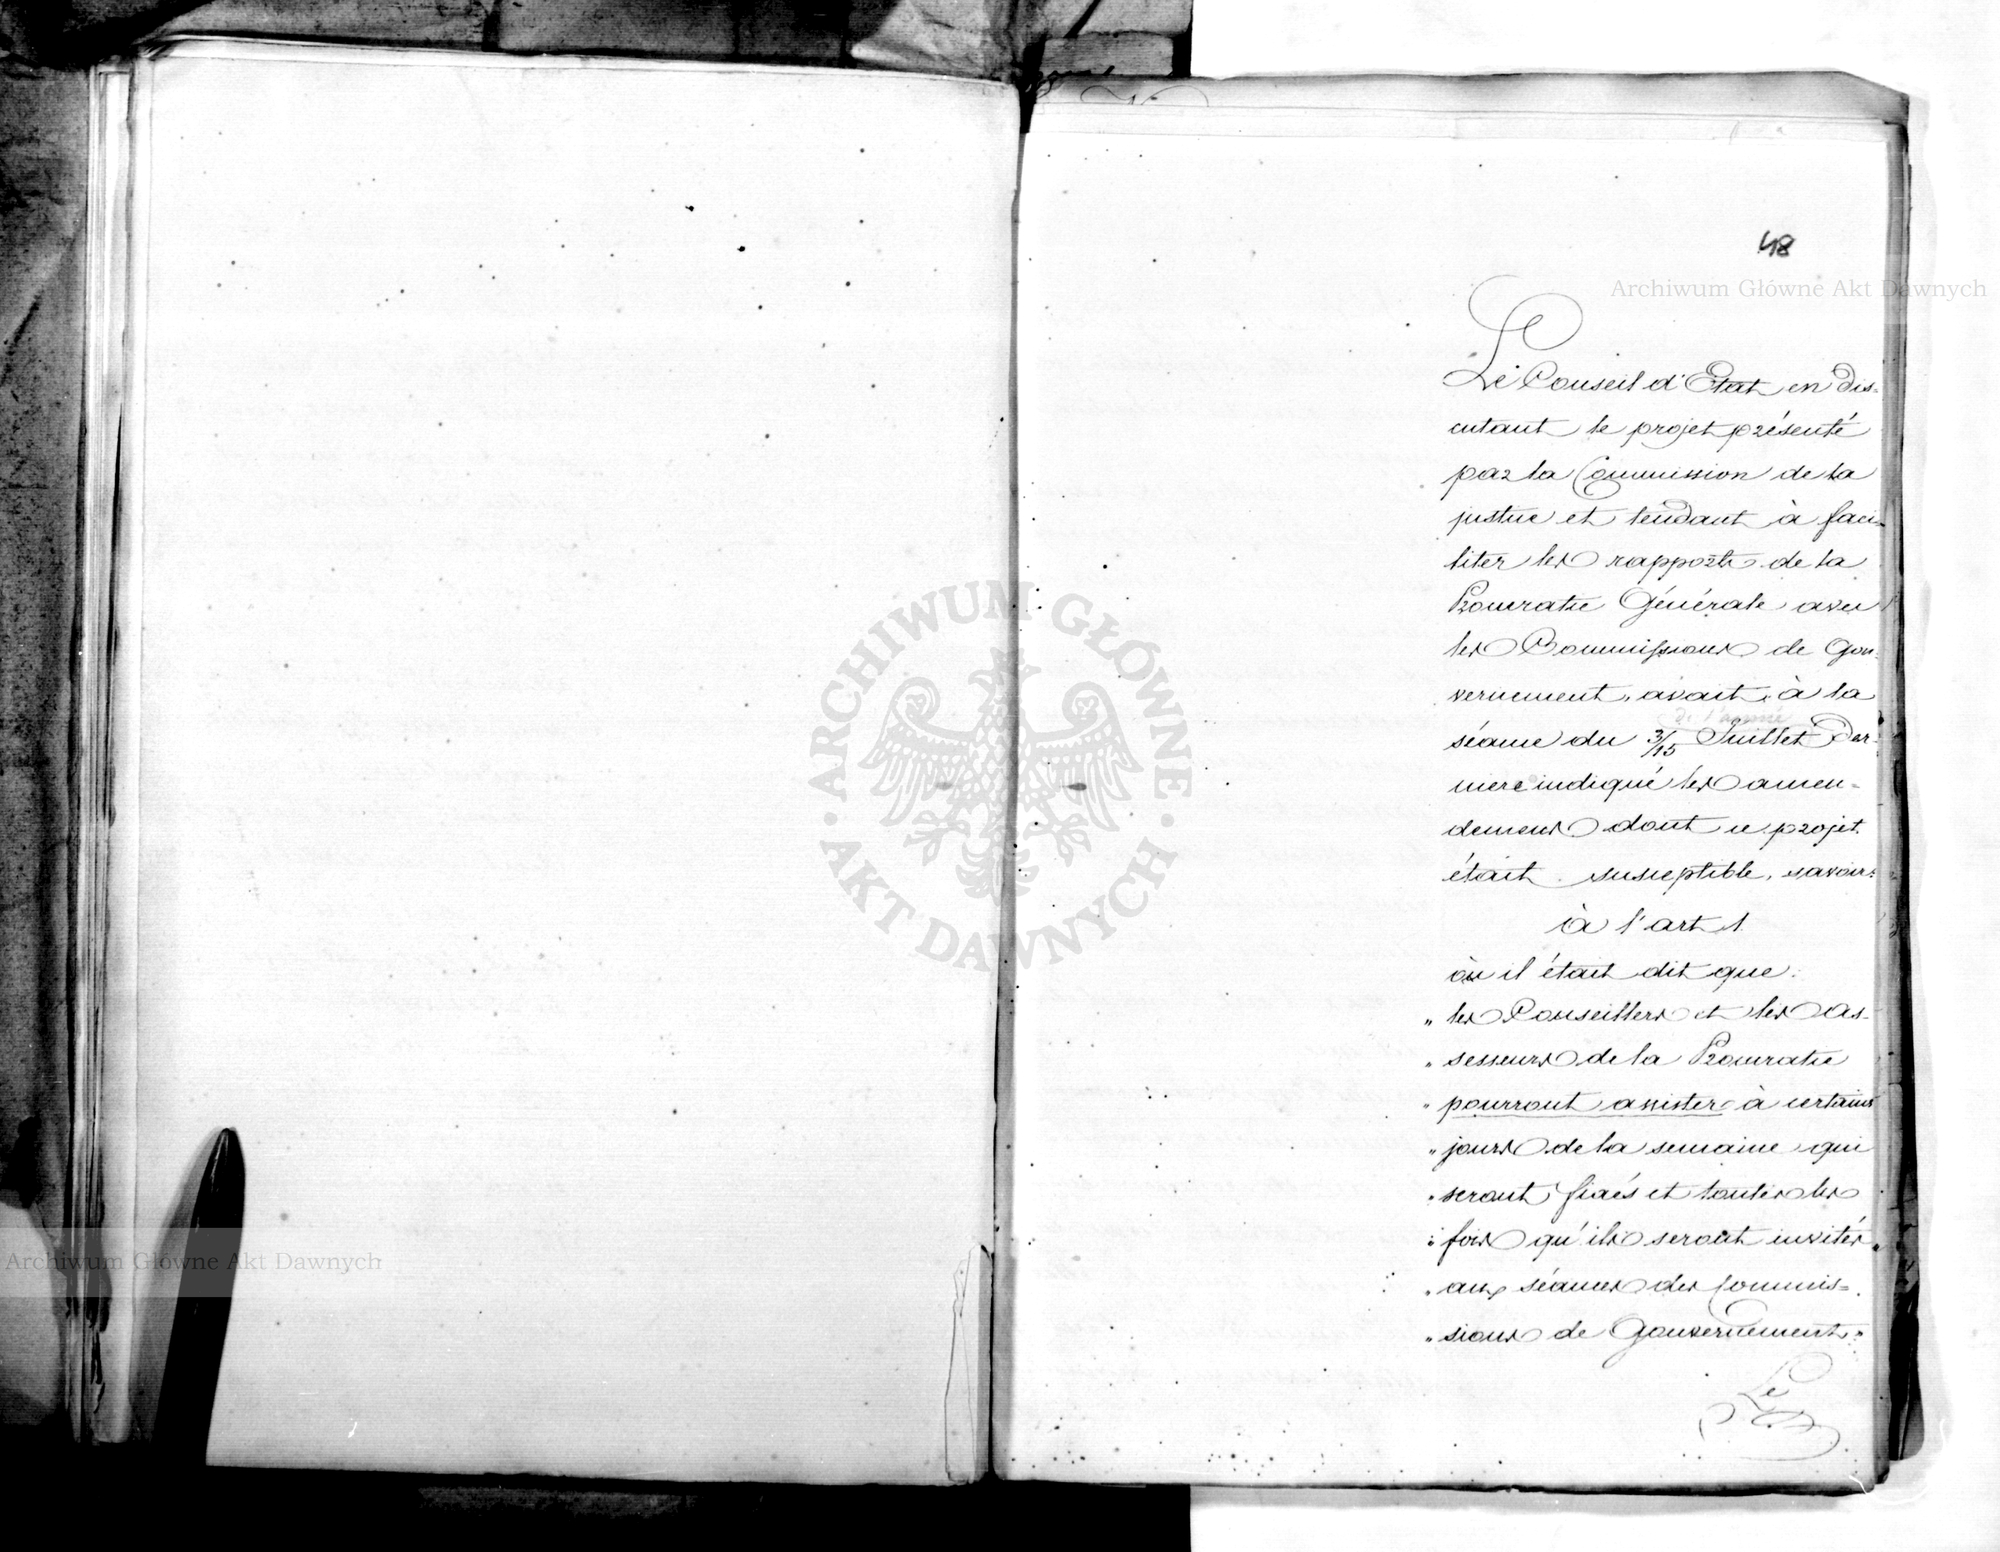 48
Archiwum Główne Akt Dawnych
Le Conseil d'Etat en dis-
cutant le projet présenté
par la Commission de la
justice et tendant à faci-
liter les rapports de la
Procuratie Générale avec
les Commissions de Gou-
vernement, avait à la
de l'année
séance du 3/15 Juillet der-
niere indiqué les amen-
demens dont ce projet
était susceptible, savoir:
à l'art 1.
où il était dit que:
„ les Conseillers et les As-
„ sesseurs de la Procuratie
„ pourront assister à certains
„ jours de la semaine qui
„ seront fixés et toutes les
„ fois qu'ils seront invités
„ aux séances des Commis-
„ sions de Gouvernement."
Le
ARCHIWUM GŁÓWNE
AKT DAWNYCH
Archiwum Główne Akt Dawnych